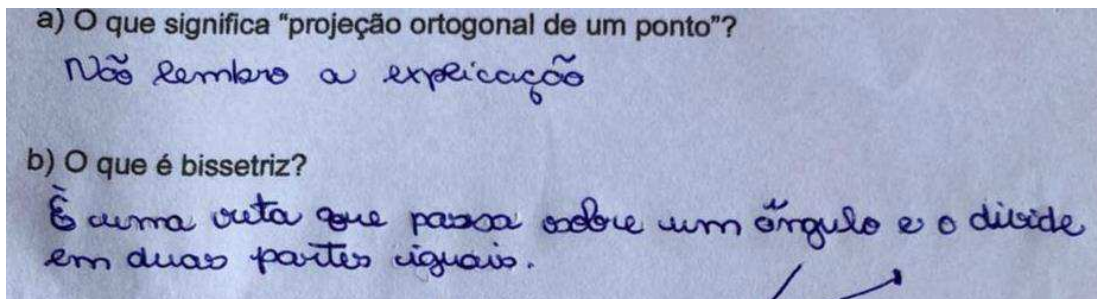 a) O que significa "projeção ortogonal de um ponto"?
Não lembro a explicação
b) O que é bissetriz?
È uma reta que passa sobre um ângulo e o divide
em duas partes iguais.